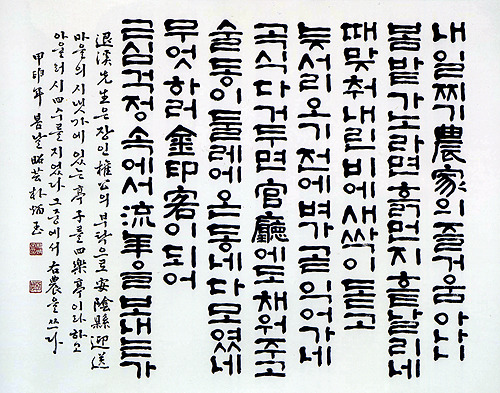 내일찌기農家의즐거움아나니
봄밭가노라면흙먼지흩날리네
때맞춰내린비에새싹이돋고
늦서리오기전에벼가곧익어가네
곡식다거두면官廳에도채워주고
술동이둘레에온동네다모였네
무엇하러金印客이되어
근심걱정속에서流年을보내는가
退溪先生은장인權公의부탁으로安陰縣迎送
마을의시냇가에있는亭子를四樂亭이라하고
아울러시四수를지었다그중에서右農을쓰다
甲申年봄날